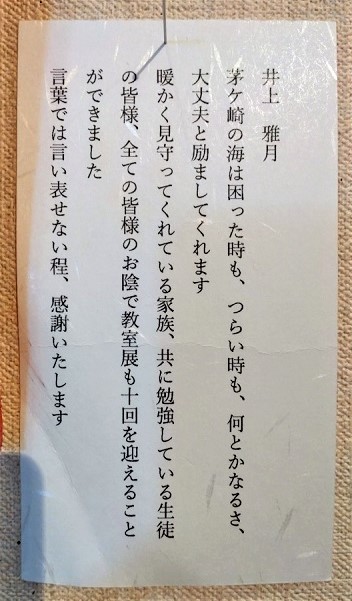 井上 雅月
茅ケ崎の海は困った時も、つらい時も、何とかなるさ、
大丈夫と励ましてくれます
暖かく見守ってくれている家族、共に勉強している生徒
の皆様、全ての皆様のお陰で教室展も十回を迎えること
ができました
言葉では言い表せない程、感謝いたします